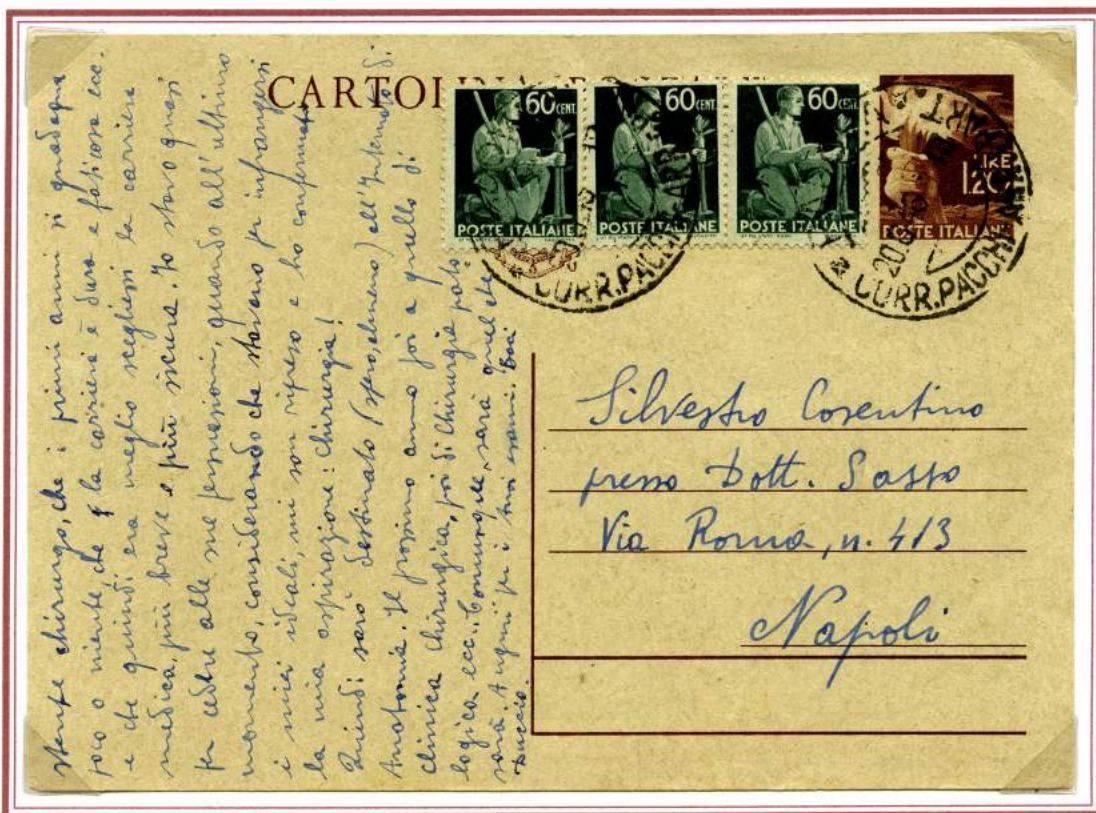 CARTOLINA
60 CENT.
60 CENT.
60 CENT.
POSTE ITALIANE
POSTE ITALIANE
POSTE ITALIANE
LIRE
1,20
POSTE ITALIANE
CORR.PACCHI
CORR.PACCHI
Silvestro Cosentino
presso Dott. Sasso
Via Roma, n. 413
Napoli
stente chirurgo, che i primi anni si guadagna
poco o niente, che la carriera è dura e faticosa ecc.
e che quindi era meglio scegliessi la carriera
medica, più breve e più sicura. Io stavo quasi
per cedere alle sue pressioni, quando all'ultimo
momento, considerando che stavano per infrangersi
i miei ideali, mi son ripreso e ho confermato
la mia aspirazione: chirurgia!
Quindi sarò destinato (spero, almeno) all'Istituto di
Anatomia. Il prossimo anno poi a quello di
Clinica Chirurgica, poi di Chirurgia pato
logica ecc. Comunque, sarà quel che
sarà. Auguri per i tuoi esami. Baci
Duccio.